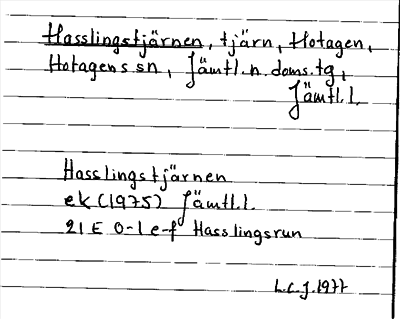 Hasslingstjärnen, tjärn, Hotagen,
Hotagens sn, Jämtl. n. doms. tg,
Jämtl. l.
Hasslingstjärnen
ek (1975) Jämtl. l.
21 E 0-1 e-f Hasslingsrun
L.C.J. 1977